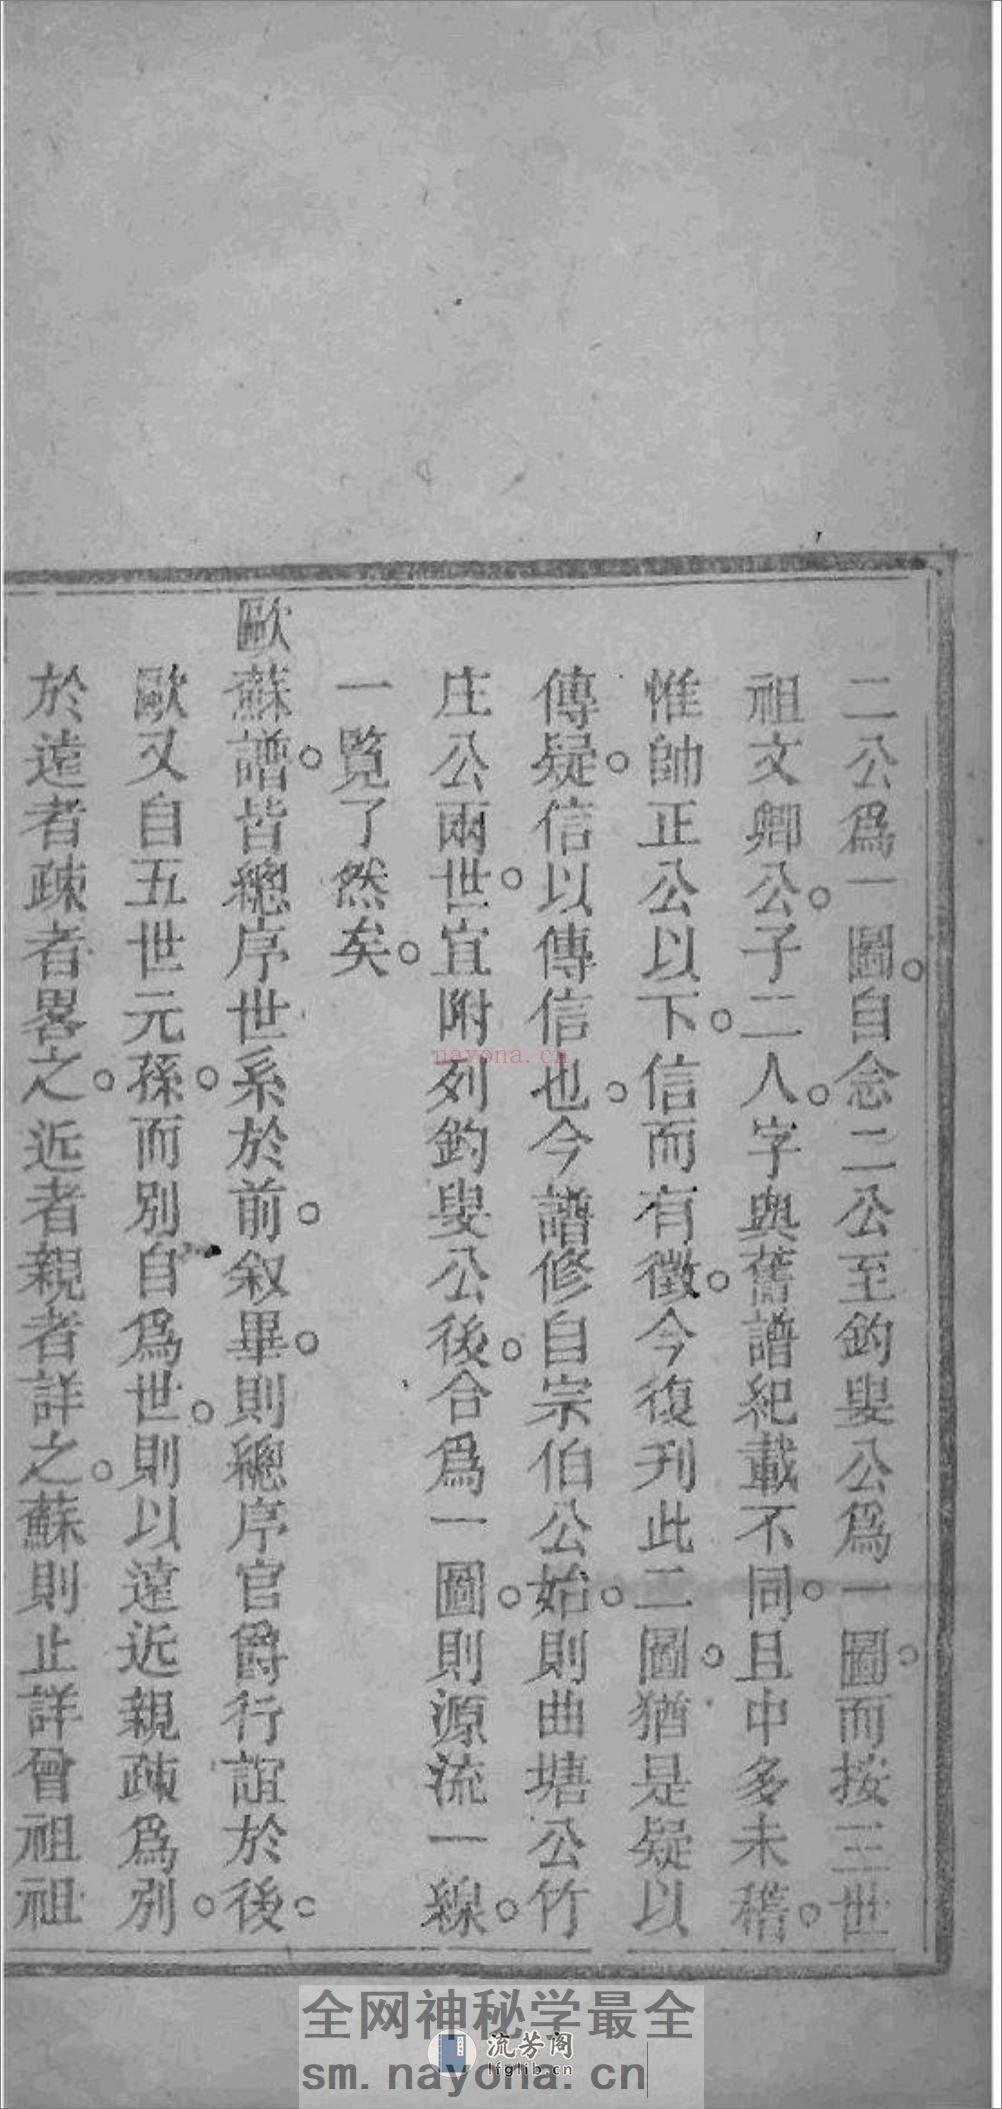 二公爲一圖。自念二公至鈞叟公爲一圖。而按三世
祖文卿公。子二人。字與舊譜紀載不同。且中多未稽。
惟帥正公以下。信而有徵。今復刋此二圖。猶是疑以
傳疑。信以傳信也。今譜修自宗伯公始。則曲塘公竹
庄公兩世。宜附列鈞叟公後。合爲一圖。則源流一線。
一覧了然矣。
歐蘇譜。皆總序世系於前。叙畢。則總序官爵行誼於後。
歐又自五世元孫。而別自爲世。則以遠近親疎爲列。
於遠者疎者畧之。近者親者詳之。蘇則止詳曾祖祖
nayona.cn
全网神秘学最全
流芳阁
lfglib.cn
sm.nayona.cn